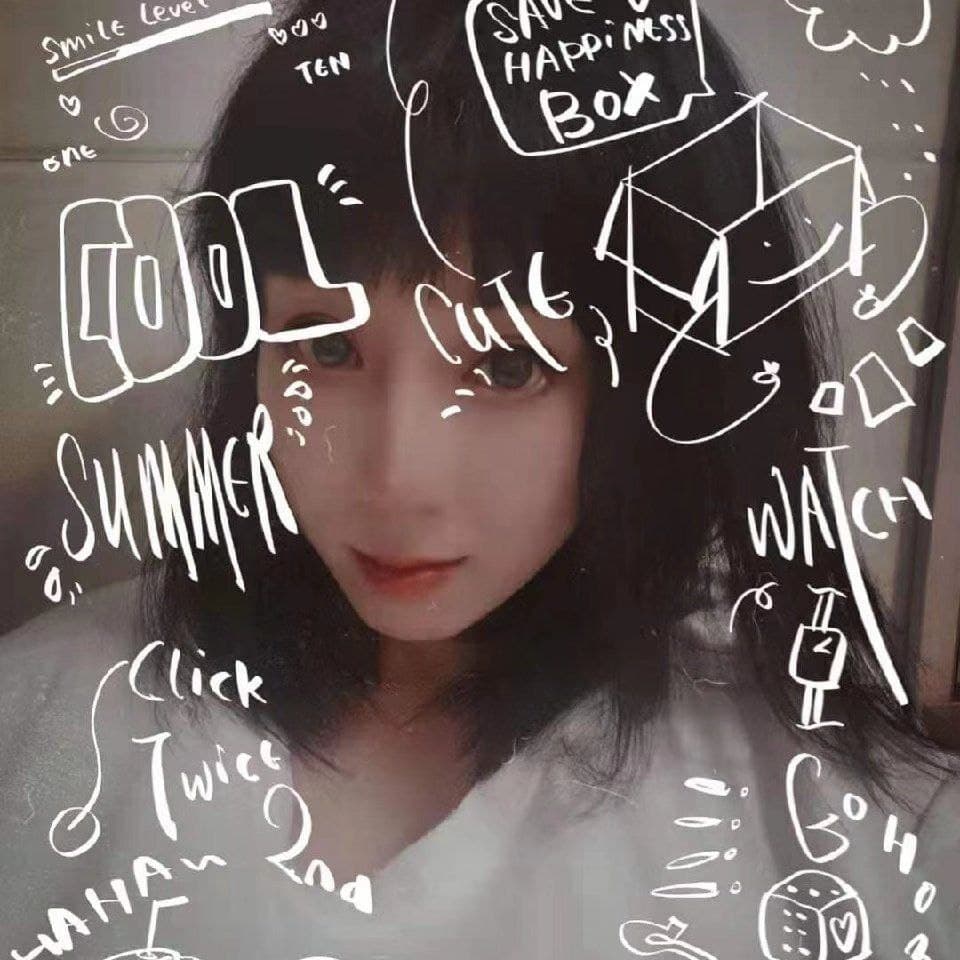 Smile Level
TEN
ONE
SAVE
HAPPINESS
BOX
COOL
CUTE
SUMMER
WATCH
Click
Twice
2nd